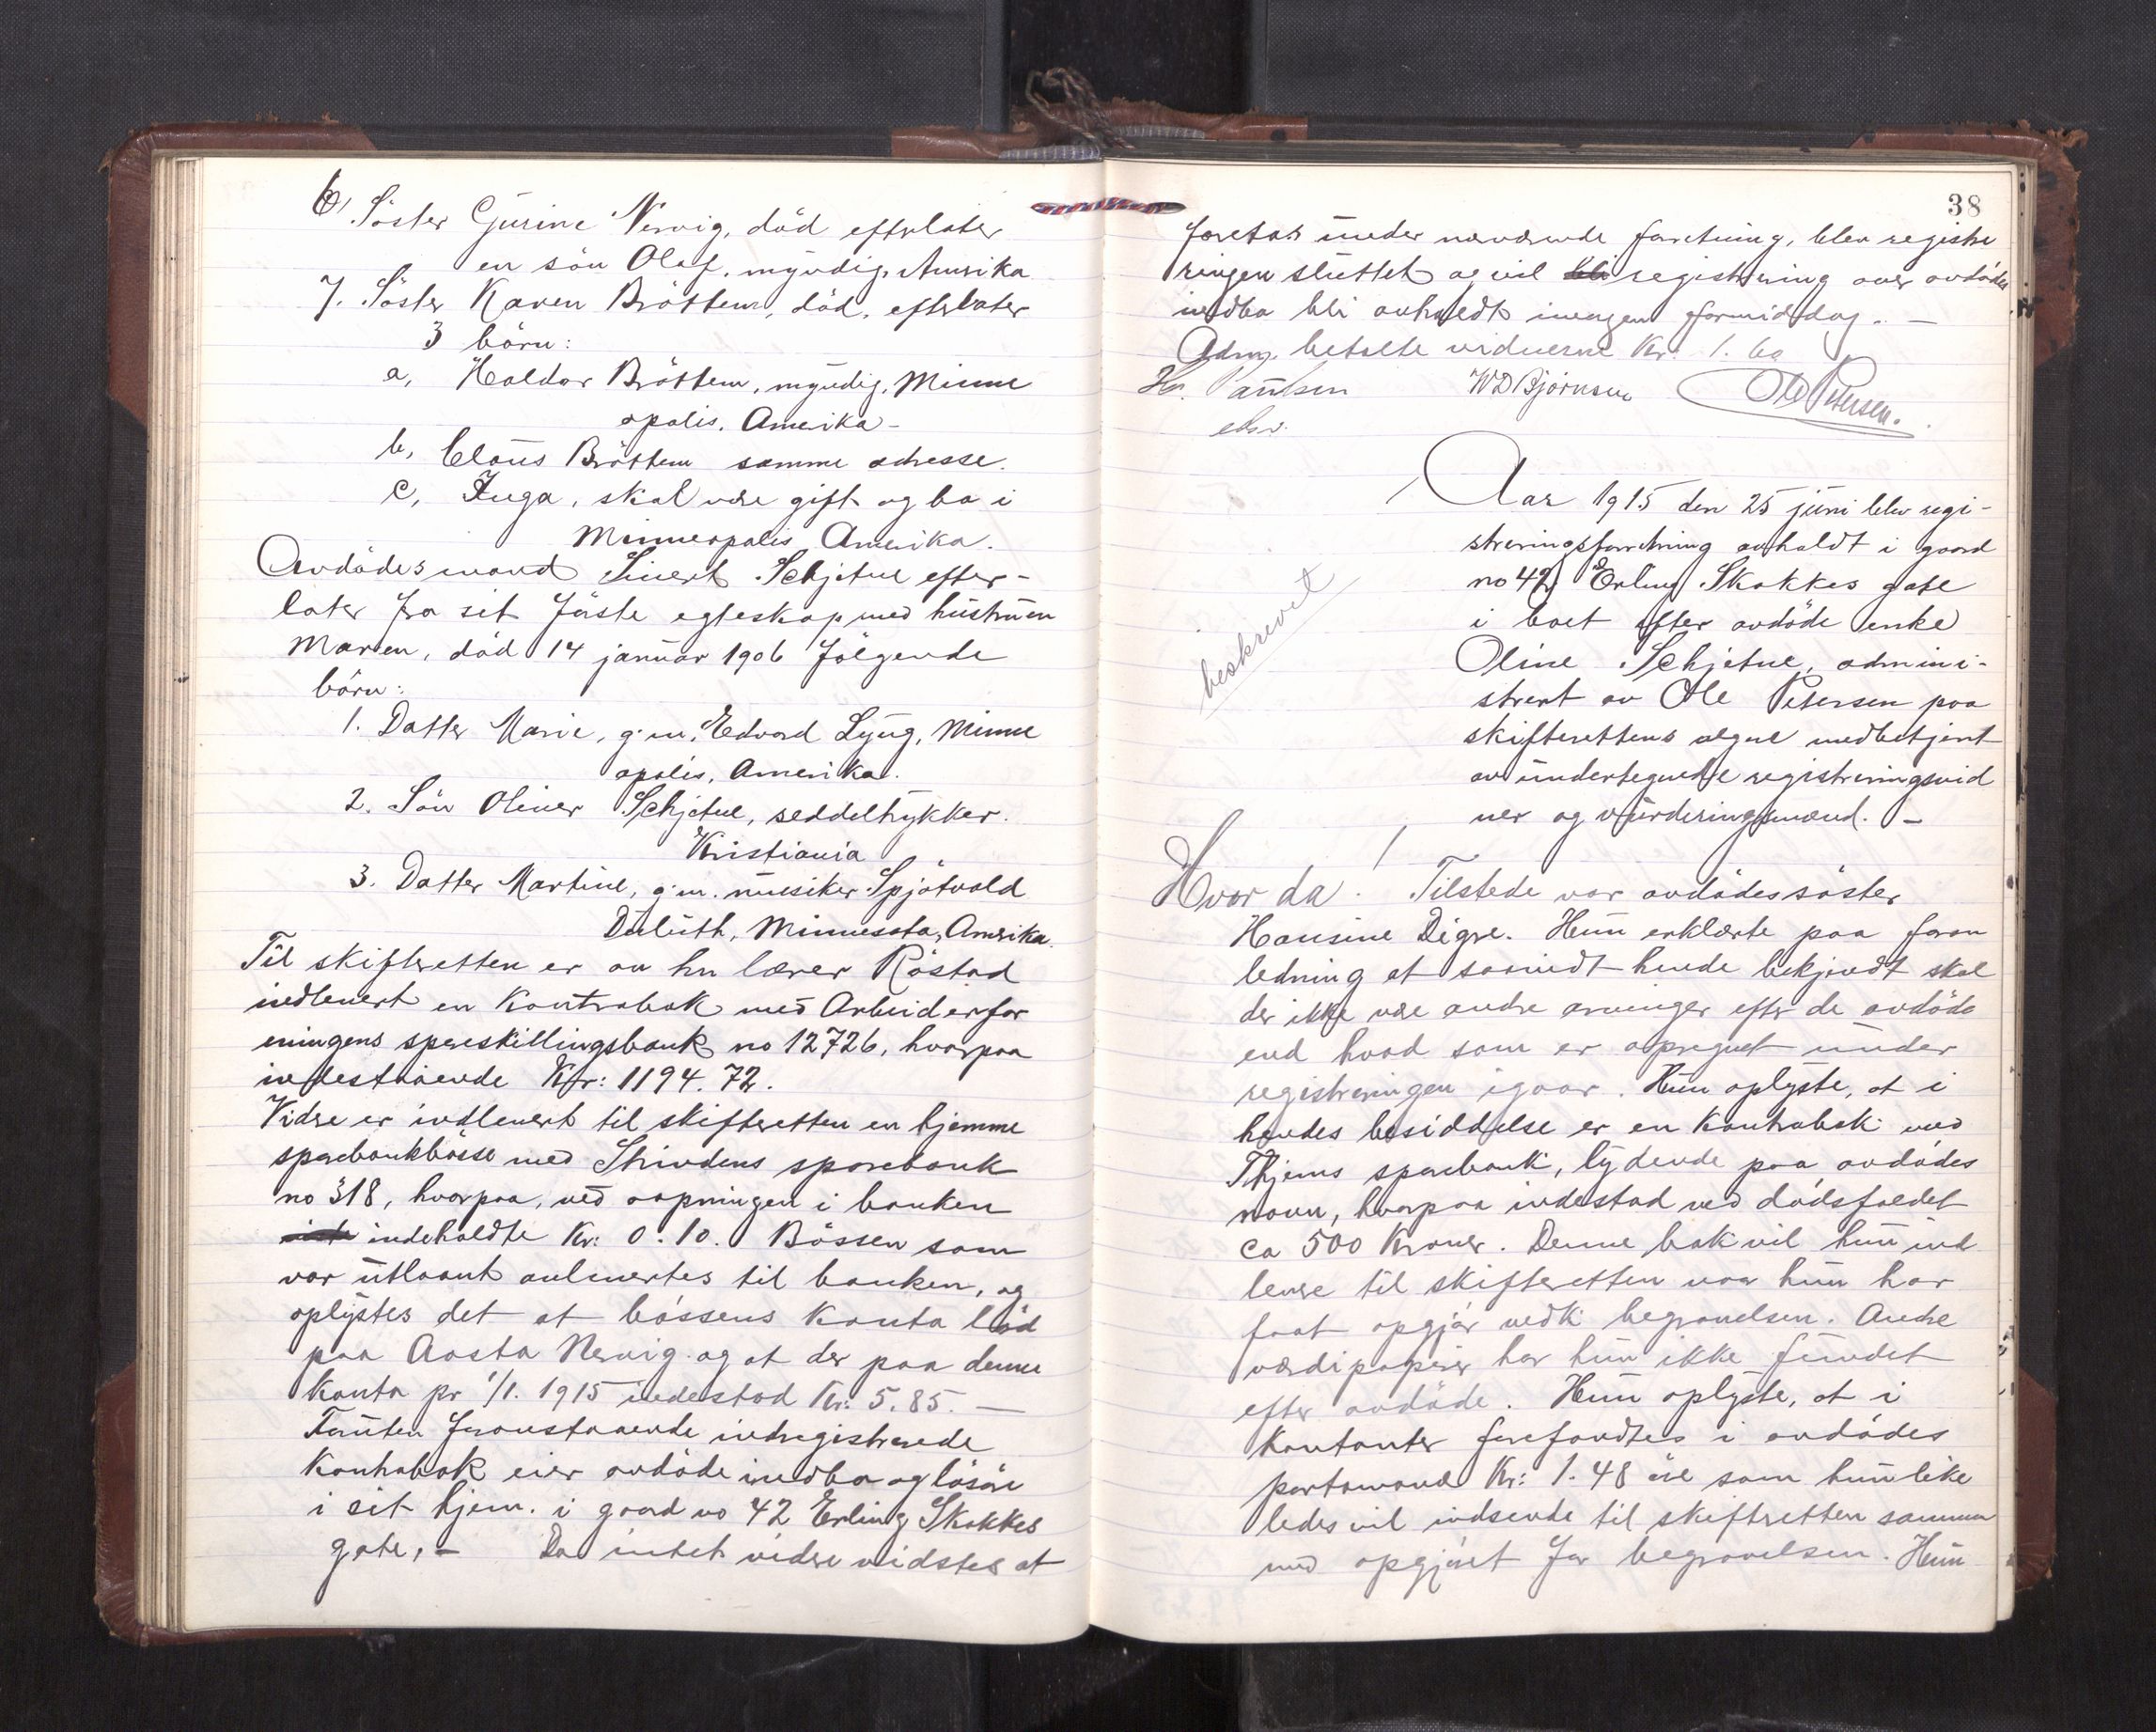 6, Söster Gurine Nervig, död efterlater
en sön Olaf, myndig, Amerika
7. Söster Karen Bröttem, död, efterlater
3 börn:
a, Haldor Bröttem, myndig, Minne
apolis, Amerika -
b, Claus Bröttem samme adresse.
c, Inga, skal være gift og bo i
Minneapolis Amerika.
Avdödes mand Sivert Schjetne efter-
later fra sit förste egteskap med hustruen
Maren, död 14 januar 1906 følgende
börn:
1. Datter Marie, g.m. Edvard Lyng, Minne
apolis, Amerika.
2. Sön Oliver Schjetne, seddeltrykker.
Kristiania
3. Datter Martine, g.m. musiker Spjötvold
Duluth, Minnesota, Amerika.
Til skifteretten er av hr lærer Röstad
indlevert en Kontrabok med Arbeiderfor
eningens spareskillingsbank no 12726, hvorpaa
indestaaende Kr: 1194.72.
Vidre er indlevert til skifteretten en hjemme
sparebankbösse med Strindens sparebank
no 318, hvorpaa, ved aapningen i banken
indeholdte Kr: 0.10. Bössen som
var utlaant avlevertes til banken, og
oplystes det at bössens Konto löd
paa Aasta Nervig og at der paa denne
Konto pr 1/1. 1915 indestod Kr: 5.85. —
Foruten foranstaaende indregistrerede
Kontrabok eier avdöde indbo og lösöre
i sit hjem i gaard no 42 Erling Skakkes
gate, - Da intet vidre vidstes at
38
foretas under nærværende forretning, blev registre
ringen sluttet og vil bli registrering over avdödes
indbo bli avholdt imorgen formiddag. —
Adm. betalte vidnerne Kr. 1.60
Paulsen W D Björnsen Ole Petersen.
beskrevet
Aar 1915 den 25 juni blev regi-
streringsforretning avholdt i gaard
no 42 Erling Skakkes gate
i boet efter avdöde enke
Oline Schjetne, admini-
strert av Ole Petersen paa
skifterettens vegne medbetjent
av undertegnede registreringsvid
ner og vurderingsmænd. —
Hvor da! Tilstede var avdödes söster
Hansine Digre. Hun erklærte paa foran
ledning at saavidt hende bekjendt skal
der ikke være andre arvinger efter de avdöde
end hvad som er opregnet under
registreringen igaar. Hun oplyste, at i
hendes besiddelse er en Kontrabok med
Thjems sparebank, lydende paa avdödes
navn, hvorpaa indestod ved dödsfaldet
ca 500 Kroner. Denne bok vil hun ind
levere til skifteretten naar hun har
faat opgjör vedk begravelsen. Andre
værdipapirer har hun ikke fundet
efter avdöde. Hun oplyste, at i
Kontanter forefandtes i avdödes
portemonæ Kr: 1.48 öre som hun like
ledes vil indsende til skifteretten sammen
med opgjöret for begravelsen. Hun